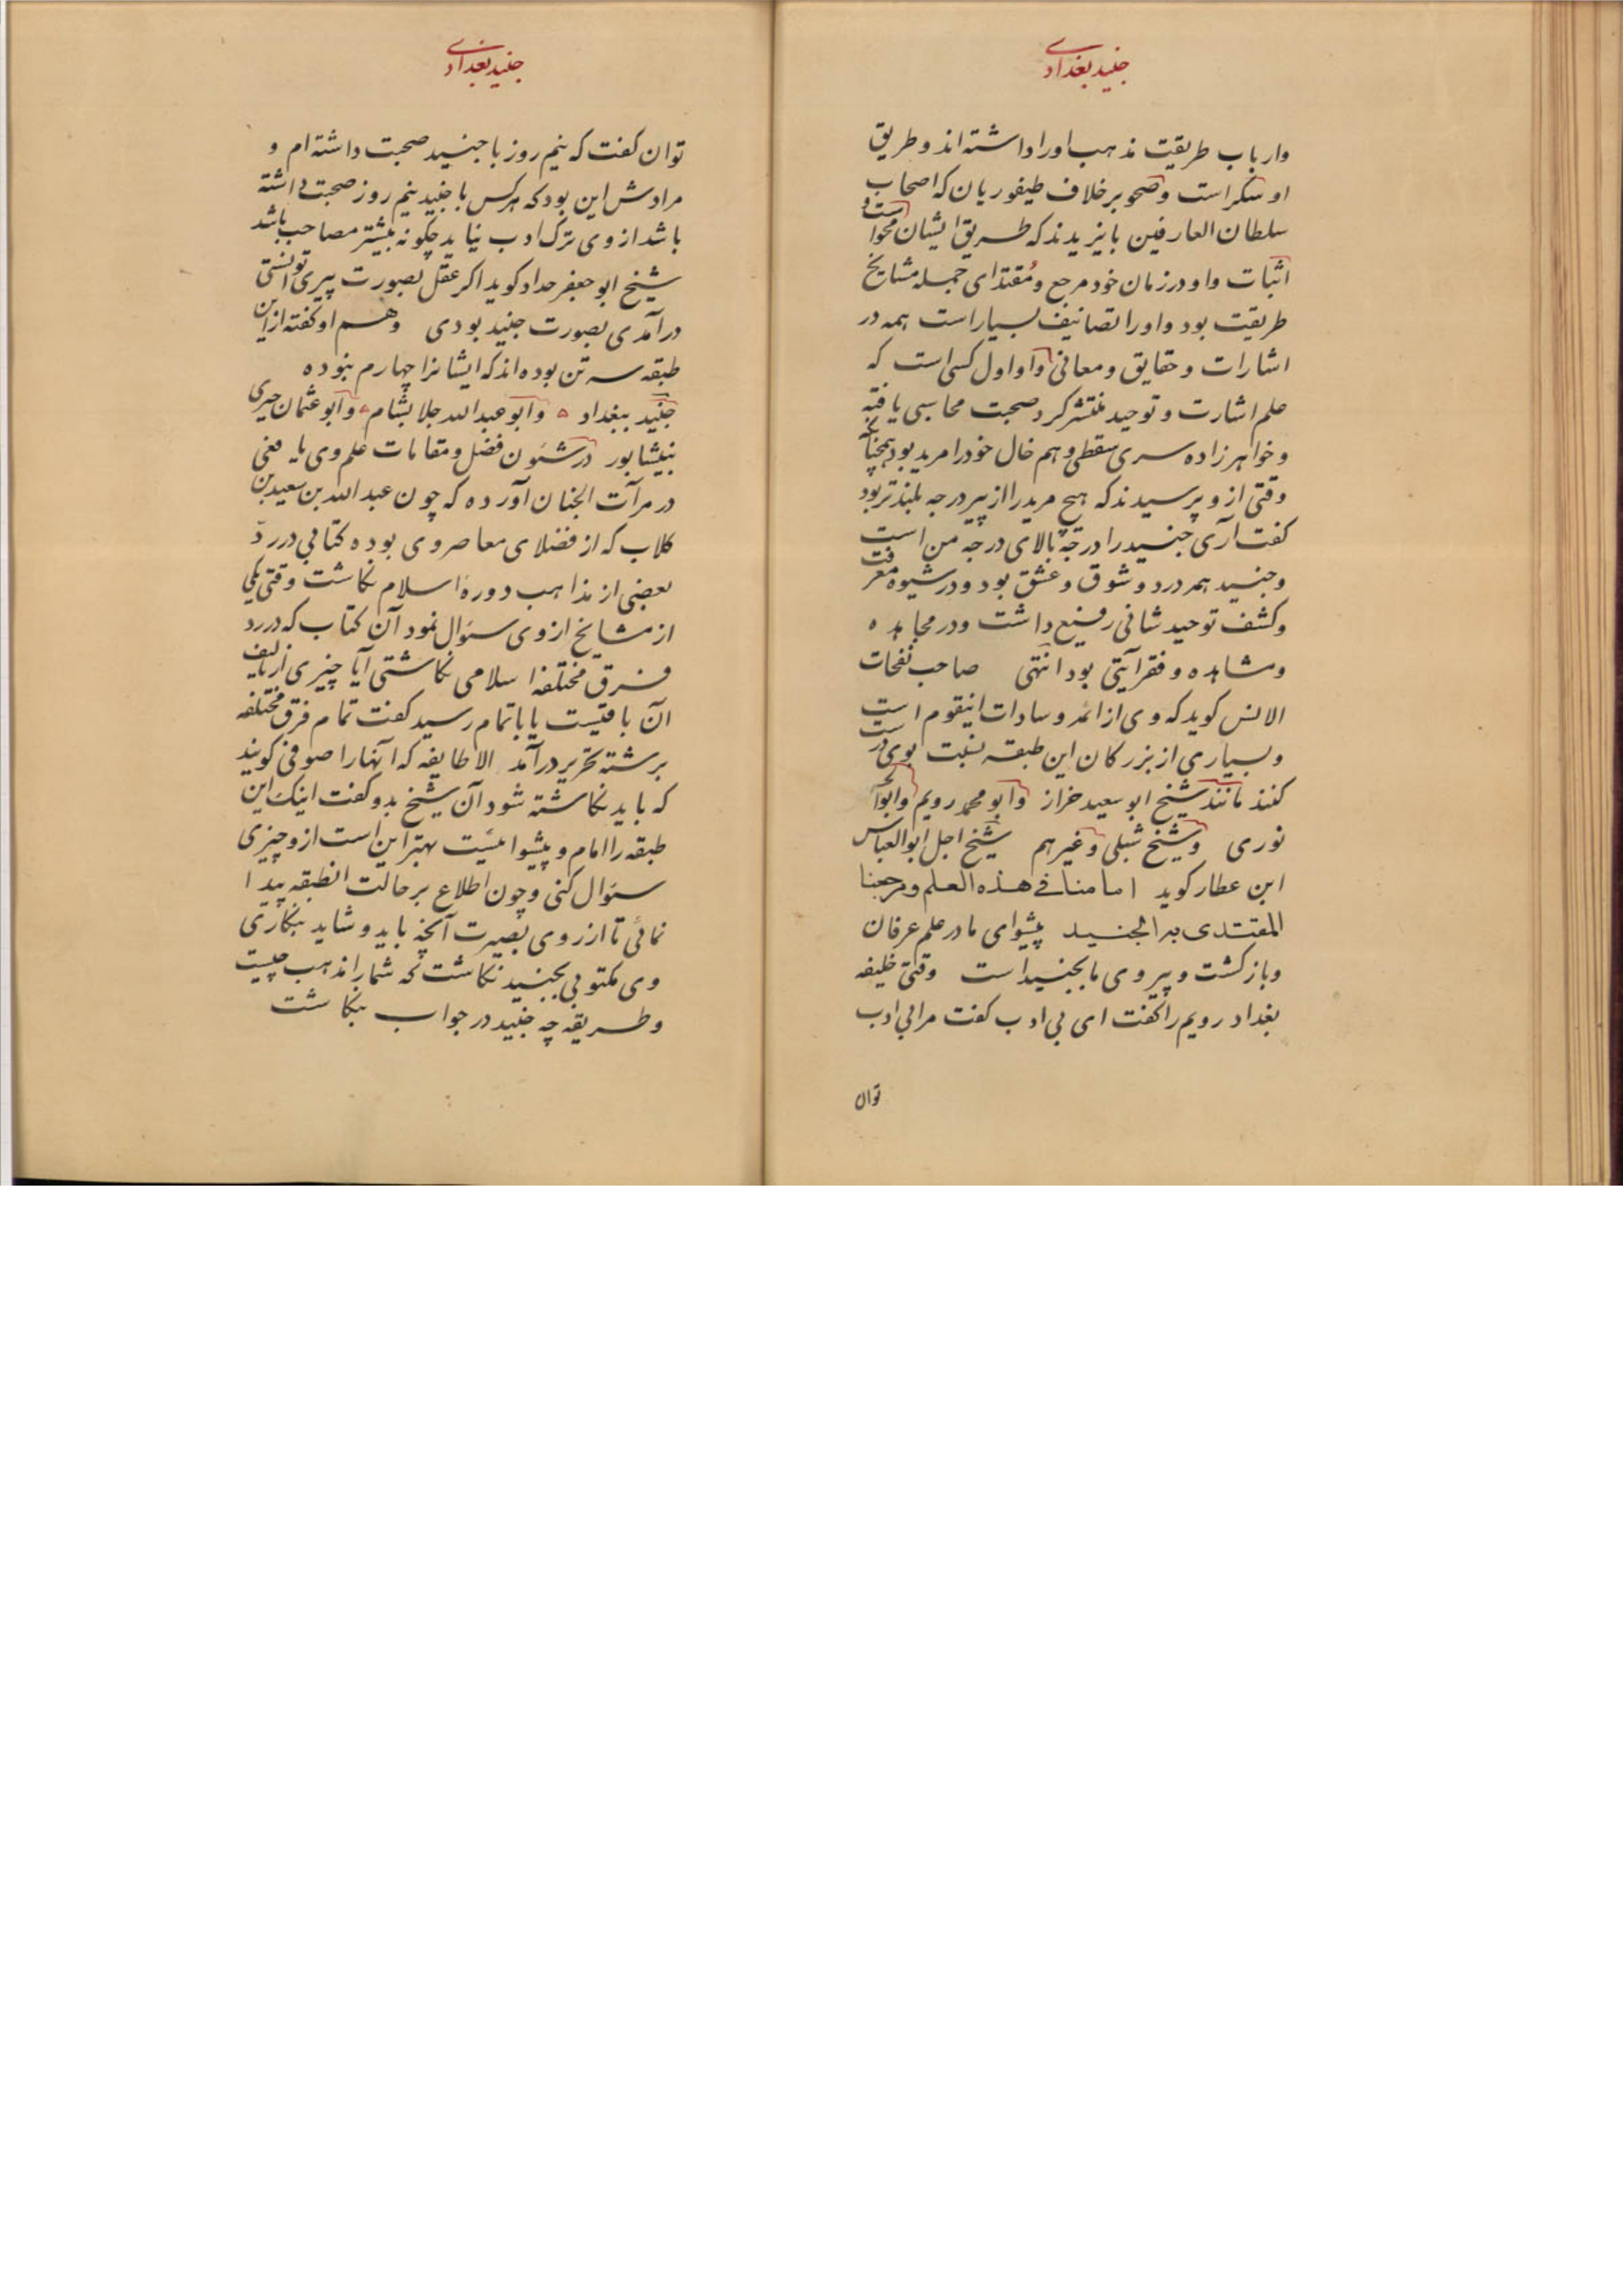 جنید بغدادی
وارباب طریقت مذهب اورا داشته اند وطریق
او سکر است وصحو برخلاف طیفوریان که اصحاب
سلطان العارفین بایزیدند که طریق ایشان محو است و
اثبات واو در زمان خود مرجع ومقتدای جمله مشایخ
طریقت بود واورا تصانیف بسیار است همه در
اشارات وحقایق ومعانی واو اول کسی است که
علم اشارت وتوحید منتشر کرد وصحبت محاسبی یافته
وخواهرزاده سری سقطی وهم خال خود را مرید بود همچنانکه
وقتی از و پرسیدند که هیچ مرید را از پیر درجه بلندتر بود
کفت آری جنید را درجه بالای درجه من است
وجنید همه درد وشوق وعشق بود ودر شیوه معرفت
وکشف توحید شانی رفیع داشت ودر مجاهده
ومشاهده وفقر آیتی بود انتهی صاحب نفحات
الانس کوید که وی از ائمه وسادات اینقوم است
وبسیاری از بزرکان این طبقه نسبت بوی درست
کنند مانند شیخ ابو سعید خراز وابو محمد رویم وابوالحسین
نوری وشیخ شبلی وغیرهم شیخ اجل ابوالعباس
ابن عطار کوید امامنا فی هذه العلم ومرجعنا
المقتدی به الجنید پیشوای ما در علم عرفان
وبازکشت وپیروی ما بجنید است وقتی خلیفه
بغداد رویم را کفت ای بی ادب کفت مرا بی ادب
توان
جنید بغدادی
توان کفت که نیم روز با جنید صحبت داشته ام و
مرادش این بود که هرکس با جنید نیم روز صحبت داشته
باشد از وی ترک ادب نیاید چکونه بیشتر مصاحب باشد
شیخ ابو جعفر حداد کوید اکر عقل بصورت پیری توانستی
درآمدی بصورت جنید بودی وهم او کفته از این
طبقه سه تن بوده اند که ایشانرا چهارم نبوده
جنید ببغداد وابو عبدالله جلا بشام وابو عثمان حیری
بنیشابور در شئون فضل ومقامات علم وی یافعی
در مرآت الجنان آورده که چون عبدالله بن سعید بن
کلاب که از فضلای معاصر وی بوده کتابی در ردّ
بعضی از مذاهب دوره اسلام نکاشت وقتی یکی
از مشایخ از وی سئوال نمود آن کتاب که در رد
فرق مختلفه اسلامی نکاشتی آیا چیزی از تالیف
آن باقیست یا باتمام رسید کفت تمام فرق مختلفه
برشته تحریر درآمد الا طایفه که آنها را صوفی کویند
که باید نکاشته شود آن شیخ بدو کفت اینک این
طبقه را امام و پیشوائیست بهتر این است از و چیزی
سئوال کنی وچون اطلاع بر حالت انطبقه پیدا
نمائی تا از روی بصیرت آنچه باید وشاید بنکاری
وی مکتوبی بجنید نکاشت که شما را مذهب چیست
وطریقه چه جنید در جواب بنکاشت